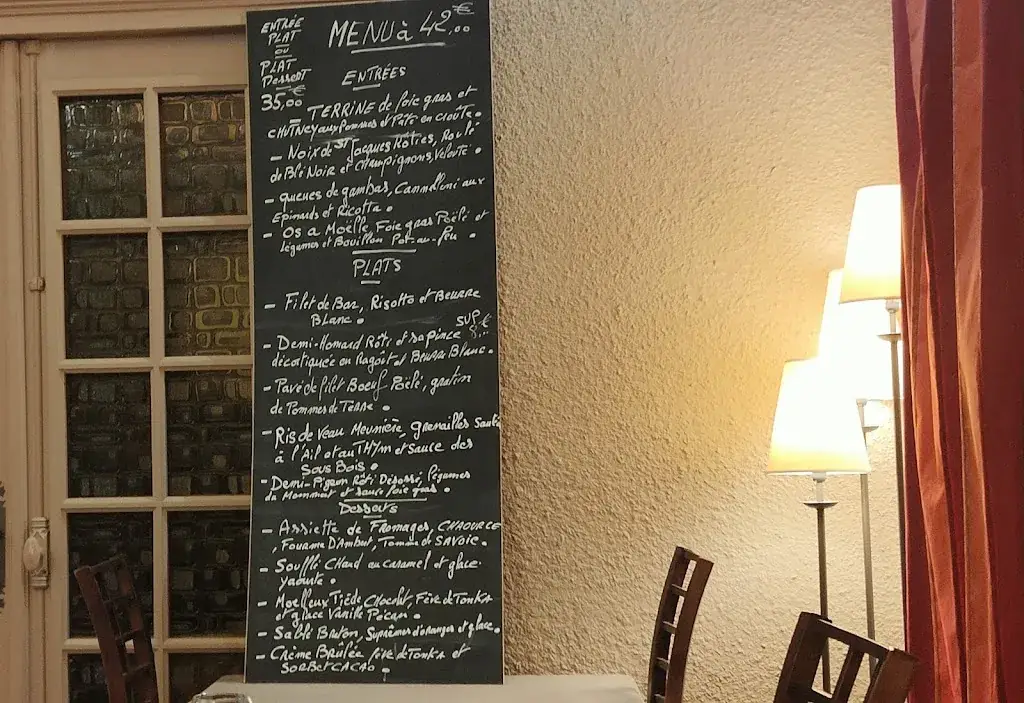 ENTRÉE
PLAT
ou
PLAT
Dessert
35,00 €
MENU à 42,00 €
ENTRÉES
- TERRINE de foie gras et
CHUTNEY aux Pommes et Pâté en croûte.
- Noix de St Jacques Rôties, Roulé
de Blé Noir et Champignons, Velouté.
- queues de gambas, Cannelloni aux
Epinards et Ricotta.
- Os a Moëlle, Foie gras Poêlé et
Légumes et Bouillon Pot-au-feu.
PLATS
- Filet de Bar, Risotto et Beurre
Blanc.
- Demi-Homard Rôti, et sa pince
SUP €
décortiquée en Ragoût et Beurre Blanc.
- Pavé de filet Boeuf Poêlé, gratin
de Pommes de Terre.
- Ris de veau Meunière, grenailles Sauté
à l'Ail et au THym et sauce des
Sous Bois.
- Demi-Pigeon Rôti Désossé, légumes
du Momment et sauce foie gras.
Desserts
- Assiette de Fromages, CHAOURCE
, Fourme D'Ambert, Tomme de SAVOIE.
- Soufflé Chaud au caramel et glace
yaourte.
- Moelleux Tiède Chocolat, Fève de Tonka
et glace Vanille Pécan.
- Sablé Breton, Suprêmes d'oranges et glace.
- Crème Brûlée fève de Tonka et
SORBET CACAO.